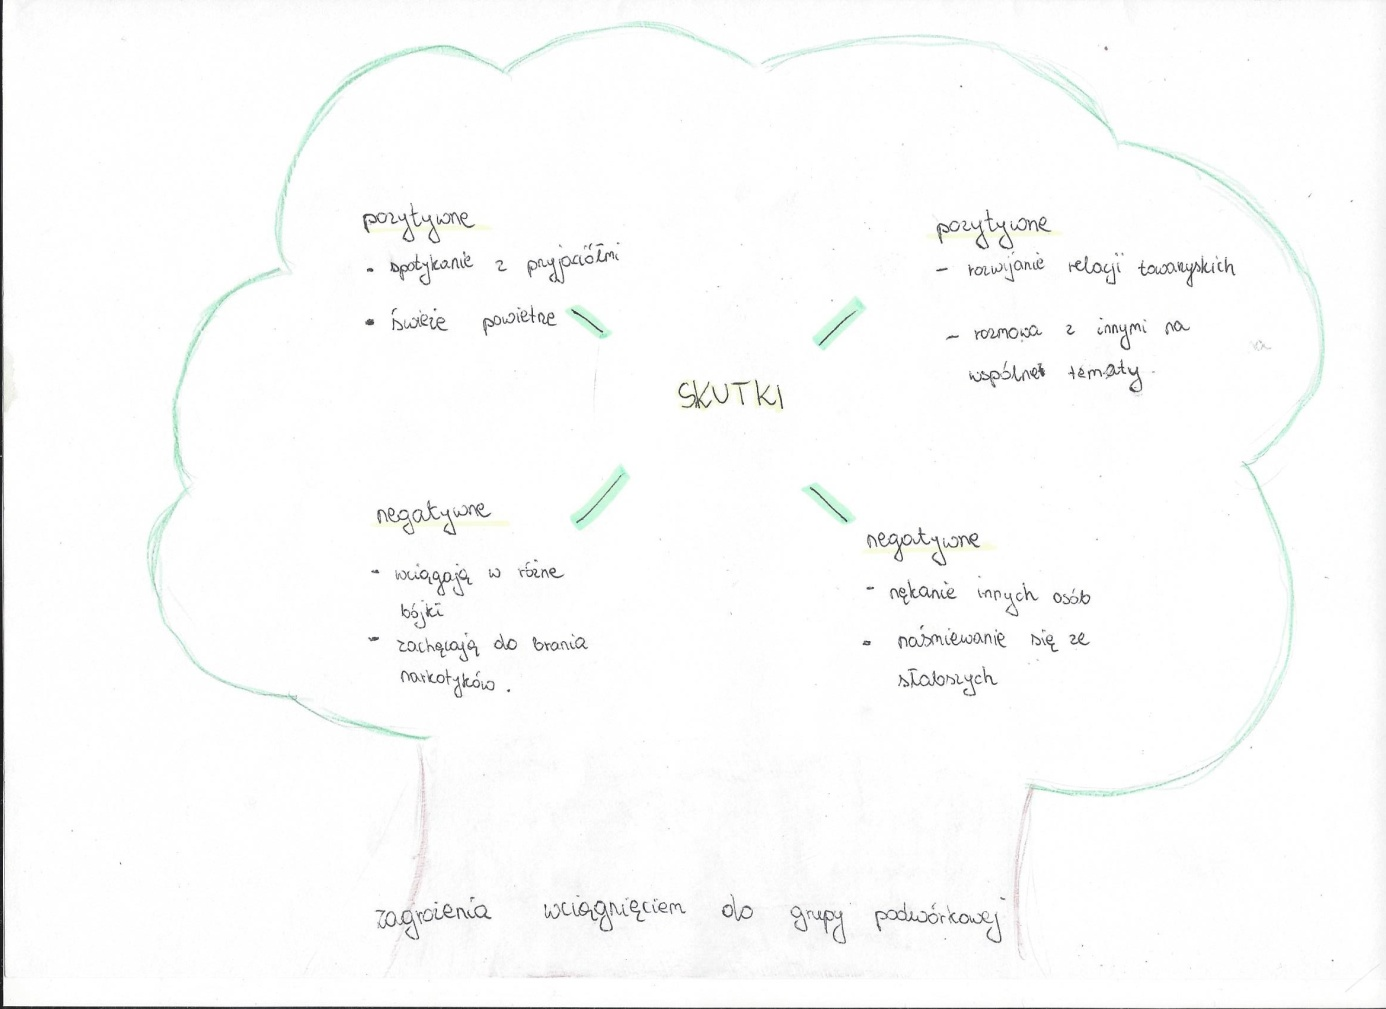 pozytywne
• spotykanie z przyjaciółmi
• świeże powietrze
pozytywne
- rozwijanie relacji towarzyskich
- rozmowa z innymi na
wspólne tematy.
SKUTKI
negatywne
- wciągają w różne
bójki
- zachęcają do brania
narkotyków.
negatywne
- nękanie innych osób
• naśmiewanie się ze
słabszych
zagrożenia wciągnięciem do grupy podwórkowej